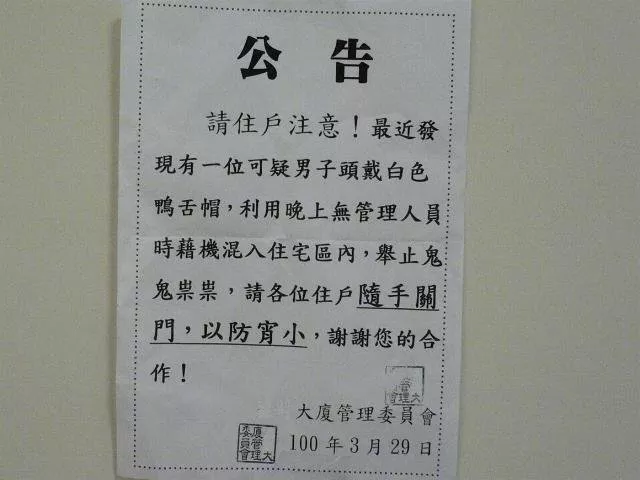 公告
請住戶注意！最近發
現有一位可疑男子頭戴白色
鴨舌帽，利用晚上無管理人員
時藉機混入住宅區內，舉止鬼
鬼祟祟，請各位住戶隨手關
門，以防宵小，謝謝您的合
作！
大廈管理委員會
100年3月29日
大廈管理委員會